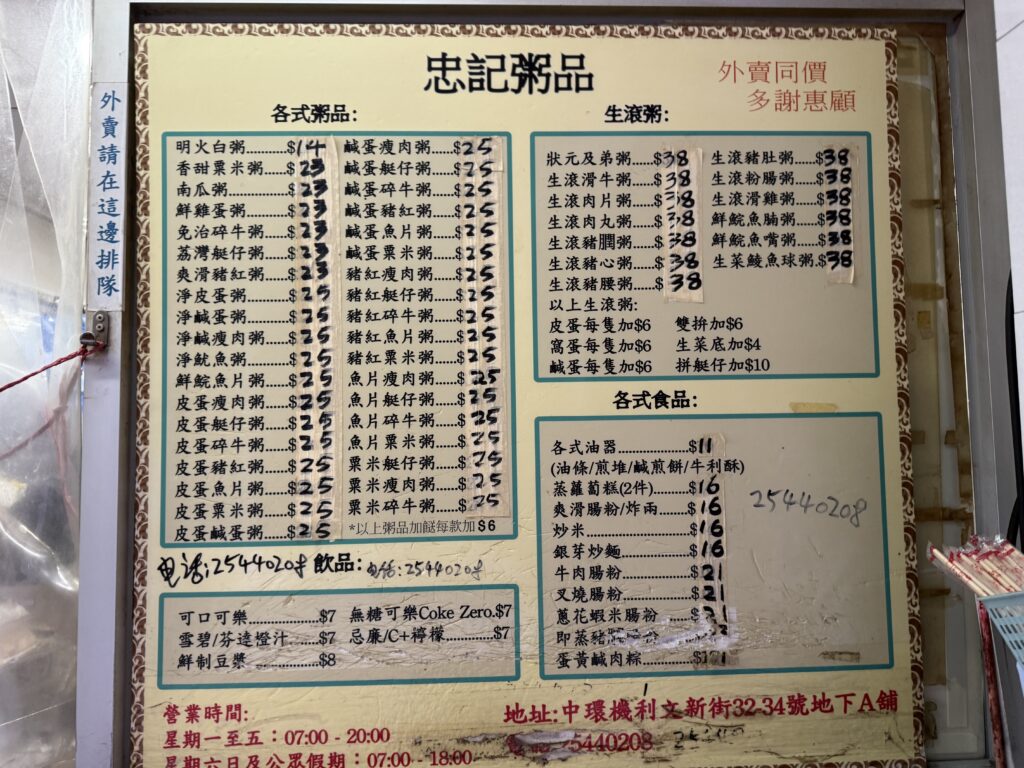 忠記粥品
外賣同價
多謝惠顧
外賣請在這邊排隊
各式粥品:
明火白粥.........$14
香甜粟米粥.....$23
南瓜粥.............$23
鮮雞蛋粥.........$23
免治碎牛粥.....$23
荔灣艇仔粥.....$23
爽滑豬紅粥.....$23
淨皮蛋粥.........$25
淨鹹蛋粥.........$25
淨鹹瘦肉粥.....$25
淨魷魚粥.........$25
鮮鯇魚片粥.....$25
皮蛋瘦肉粥.....$25
皮蛋艇仔粥.....$25
皮蛋碎牛粥.....$25
皮蛋豬紅粥.....$25
皮蛋魚片粥.....$25
皮蛋粟米粥.....$25
皮蛋鹹蛋粥.....$25
鹹蛋瘦肉粥.....$25
鹹蛋艇仔粥.....$25
鹹蛋碎牛粥.....$25
鹹蛋豬紅粥.....$25
鹹蛋魚片粥.....$25
鹹蛋粟米粥.....$25
豬紅瘦肉粥.....$25
豬紅艇仔粥.....$25
豬紅碎牛粥.....$25
豬紅魚片粥.....$25
豬紅粟米粥.....$25
魚片瘦肉粥.....$25
魚片艇仔粥.....$25
魚片碎牛粥.....$25
魚片粟米粥.....$25
粟米艇仔粥.....$25
粟米瘦肉粥.....$25
粟米碎牛粥.....$25
*以上粥品加餸每款加$6
生滾粥:
狀元及弟粥.....$38
生滾滑牛粥.....$38
生滾肉片粥.....$38
生滾肉丸粥.....$38
生滾豬膶粥.....$38
生滾豬心粥.....$38
生滾豬腰粥.....$38
生滾豬肚粥.....$38
生滾粉腸粥.....$38
生滾滑雞粥.....$38
鮮鯇魚腩粥.....$38
鮮鯇魚嘴粥.....$38
生菜鯪魚球粥.$38
以上生滾粥:
皮蛋每隻加$6 雙拚加$6
窩蛋每隻加$6 生菜底加$4
鹹蛋每隻加$6 拼艇仔加$10
各式食品:
各式油器................$11
(油條/煎堆/鹹煎餅/牛利酥)
蒸蘿蔔糕(2件)........$16
爽滑腸粉/炸兩.......$16
炒米.......................$16
銀芽炒麵................$16
牛肉腸粉................$21
叉燒腸粉................$21
蔥花蝦米腸粉
即蒸豬
蛋黃鹹肉粽
25440208
电话:25440208 飲品: 电话:25440208
可口可樂...............$7 無糖可樂Coke Zero.$7
雪碧/芬達橙汁......$7 忌廉/C+檸檬...........$7
鮮制豆漿...............$8
營業時間:
星期一至五：07:00 - 20:00
星期六日及公眾假期：07:00 - 18:00
地址:中環機利文新街32-34號地下A舖
25440208